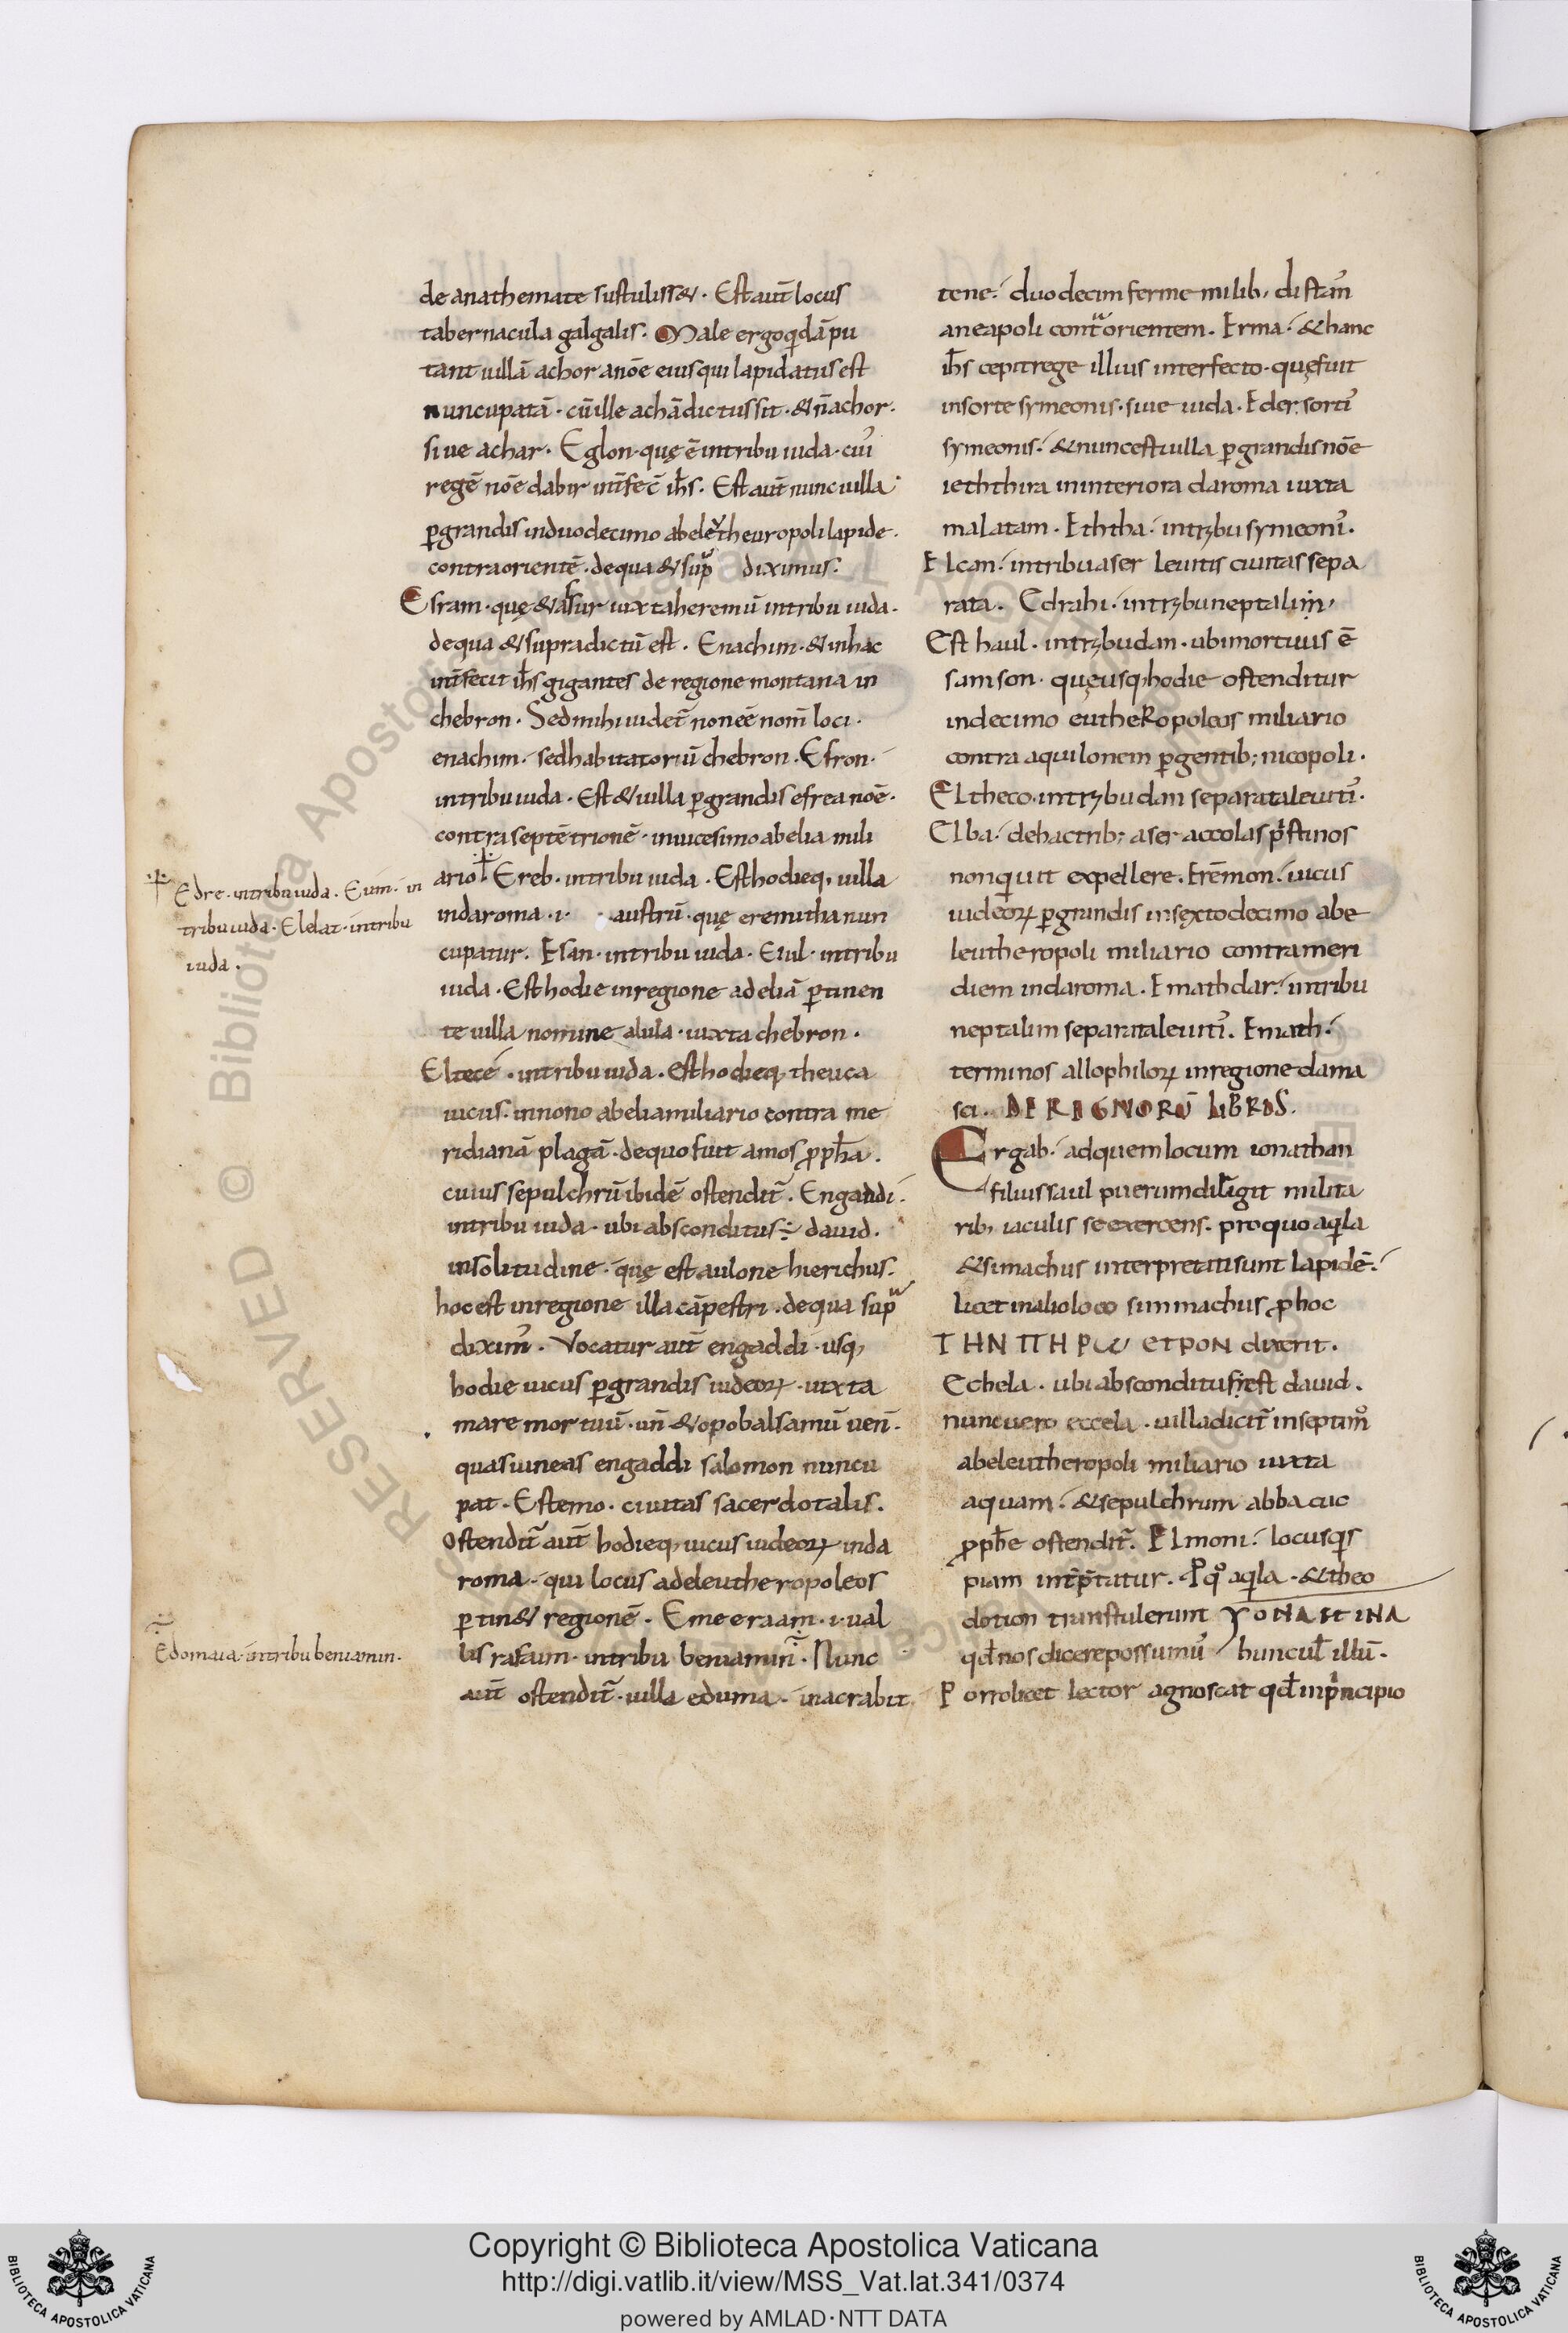 de anathemate sustuliss&. Est aut̄ locus
tabernacula galgalis. Male ergo qidā pu
tant uillā achor a nōe eius qui lapidatus est
nuncupatā. cū ille achā dictus sit. & n̄ achor.
siue achar. Eglon. quę ē in tribu iuda. cui᾽
regē nōe dabir int̄fec̄ ih̄s. Est aut̄ nunc uilla
ꝑgrandis in duodecimo ab eleutheuropoli lapide.
contra orientē. de qua & sup̄ diximus.
Esram. quę & asur iuxta heremū in tribu iuda.
de qua & supra dictū est. Enachim. & in hac
int̄fecit ih̄s gigantes de regione montana in
chebron. Sed mihi uidet̄ non eē nom̄ loci.
enachim. sed habitatorū chebron. Efron.
in tribu iuda. Est & uilla ꝑgrandis efrea nōe.
contra septētrionē. in uicesimo ab elia mili
ario. Ereb. in tribu iuda. Est hodieq, uilla
in daroma .i. austrū. quę eremitha nun
cupatur. Esan. in tribu iuda. Eiul. in tribu
iuda. Est hodie in regione ad eliā ꝑtinen
te uilla nomine alula. iuxta chebron.
Eltecē. in tribu iuda. est hodieq, theuca
uicus. in nono ab elia miliario contra me
ridianā plagā. de quo fuit amos ꝓph̄a.
cuius sepulchrū ibidē ostendit̄. Engaddi.
in tribu iuda. ubi absconditus ÷ dauid.
in solitudine. quę est aulone hierichus.
hoc est in regione illa cāpestri. de qua sup̄
dixim᾽. Vocatur aut̄ engaddi. usq,
hodie uicus ꝑgrandis iudeoꝝ. iuxta
mare mortuū. un̄ & opobalsamū uen̄.
quas uineas engaddi salomon nuncu
pat. Estemo. ciuitas sacerdotalis.
Ostendit̄ aut̄ hodieq, uicus iudeoꝝ in da
roma. qui locus ad eleutheropoleos
ꝑtin& regionē. Emeeraam .i. ual
lis rafaim. in tribu beniamin. Nunc
aut̄ ostendit̄. uilla eduma. in acrabit
Edre. in tribu iuda. Eim. in
tribu iuda. Elelat. in tribu
iuda.
Edomaia. in tribu beniamin.
tene. duodecim ferme milib, distan᾽
a neapoli contra orientem. Erma. & hanc
ih̄s cepit rege illius interfecto. quę fuit
in sorte symeonis. siue iuda. Eder. sorti᾽
symeonis. & nunc est uilla ꝑgrandis nōe
ieththira in interiora daroma iuxta
malatam. Eththa. in tribu symeoni᾽.
Elcan. in tribu aser leuitis ciuitas sepa
rata. Edrahi. in tribu neptalim,
Esthaul. in tribu dan. ubi mortuus ē
samson. quę usq, hodie ostenditur
in decimo eutheRopoleos miliario
contra aquilonem ꝑgentib; nicopoli.
Eltheco. in tribu dan separata leuiti᾽.
Elba. de hac trib; aser accolas p̄stinos
non quiuit expellere. Erēmon. uicus
iudeoꝝ ꝑgrandis in sęxtodecimo abe
leutheropoli miliario contra meri
diem in daroma. Emathdar. in tribu
neptalim separata leuiti᾽. Emath.
terminos allophiloꝝ in regione dama
sci. DE REGNORŪ LIBRIS.
Ergab. ad quem locum ionathan
filius saul puerum diligit milita
rib, iaculis se exercens. pro quo aqila
& simachus interpretati sunt lapidē.
licet in alio loco simmachus ꝓ hoc
THN ΠHPω ETPON dixerit.
Echela. ubi absconditus est dauid.
nunc uero eccela. uilla dicit̄ in septimo
ab eleutheropoli miliario iuxta
aquam. & sepulchrum abbacuc
ꝓph̄e ostendit̄. Elmoni. locus qis
piam int̄p̄tatur. P qo aqila. & theo
dotion transtulerunt YONASTINA
qd̄ nos dicere possumu᾽ hunc ul̄ illū.
Porro licet lector agnoscat qd̄ in p̄ncipio
Copyright © Biblioteca Apostolica Vaticana
http://digi.vatlib.it/view/MSS_Vat.lat.341/0374
powered by AMLAD·NTT DATA
BIBLIOTECA APOSTOLICA VATICANA
BIBLIOTECA APOSTOLICA VATICANA